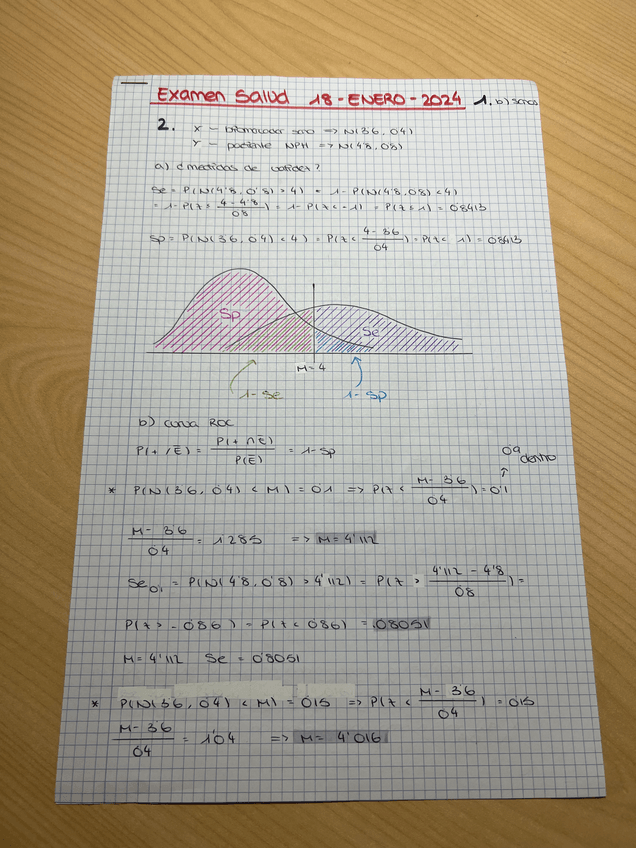 Examen Salud 18-ENERO-2024 1. b) sanos
2. X - biomarcador sano => N(3'6, 0'4)
Y - paciente NPH => N(4'8, 0'8)
a) ¿medidas de validez?
Se = P(N(4'8, 0'8) > 4) = 1 - P(N(4'8, 0'8) < 4)
= 1 - P(z < (4 - 4'8)/0'8) = 1 - P(z < -1) = P(z < 1) = 0'8413
Sp = P(N(3'6, 0'4) < 4) = P(z < (4 - 3'6)/0'4) = P(z < 1) = 0'8413
Sp
Se
M = 4
1 - Se
1 - Sp
b) curva ROC
P(+/Ē) = P(+ ∩ Ē)/P(Ē) = 1 - Sp
0'9 dentro
* P(N(3'6, 0'4) < M) = 0'1 => P(z < (M - 3'6)/0'4) = 0'1
(M - 3'6)/0'4 = 1'285 => M = 4'112
Se0'1 = P(N(4'8, 0'8) > 4'112) = P(z > (4'112 - 4'8)/0'8) =
P(z > -0'86) = P(z < 0'86) = 0'8051
M = 4'112 Se = 0'8051
* P(N(3'6, 0'4) < M) = 0'15 => P(z < (M - 3'6)/0'4) = 0'15
(M - 3'6)/0'4 = 1'04 => M = 4'016